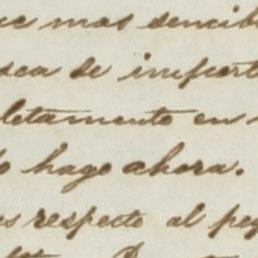 que mas sencib
sea se import
letamente en
o hago ahora.
es respecto al peq